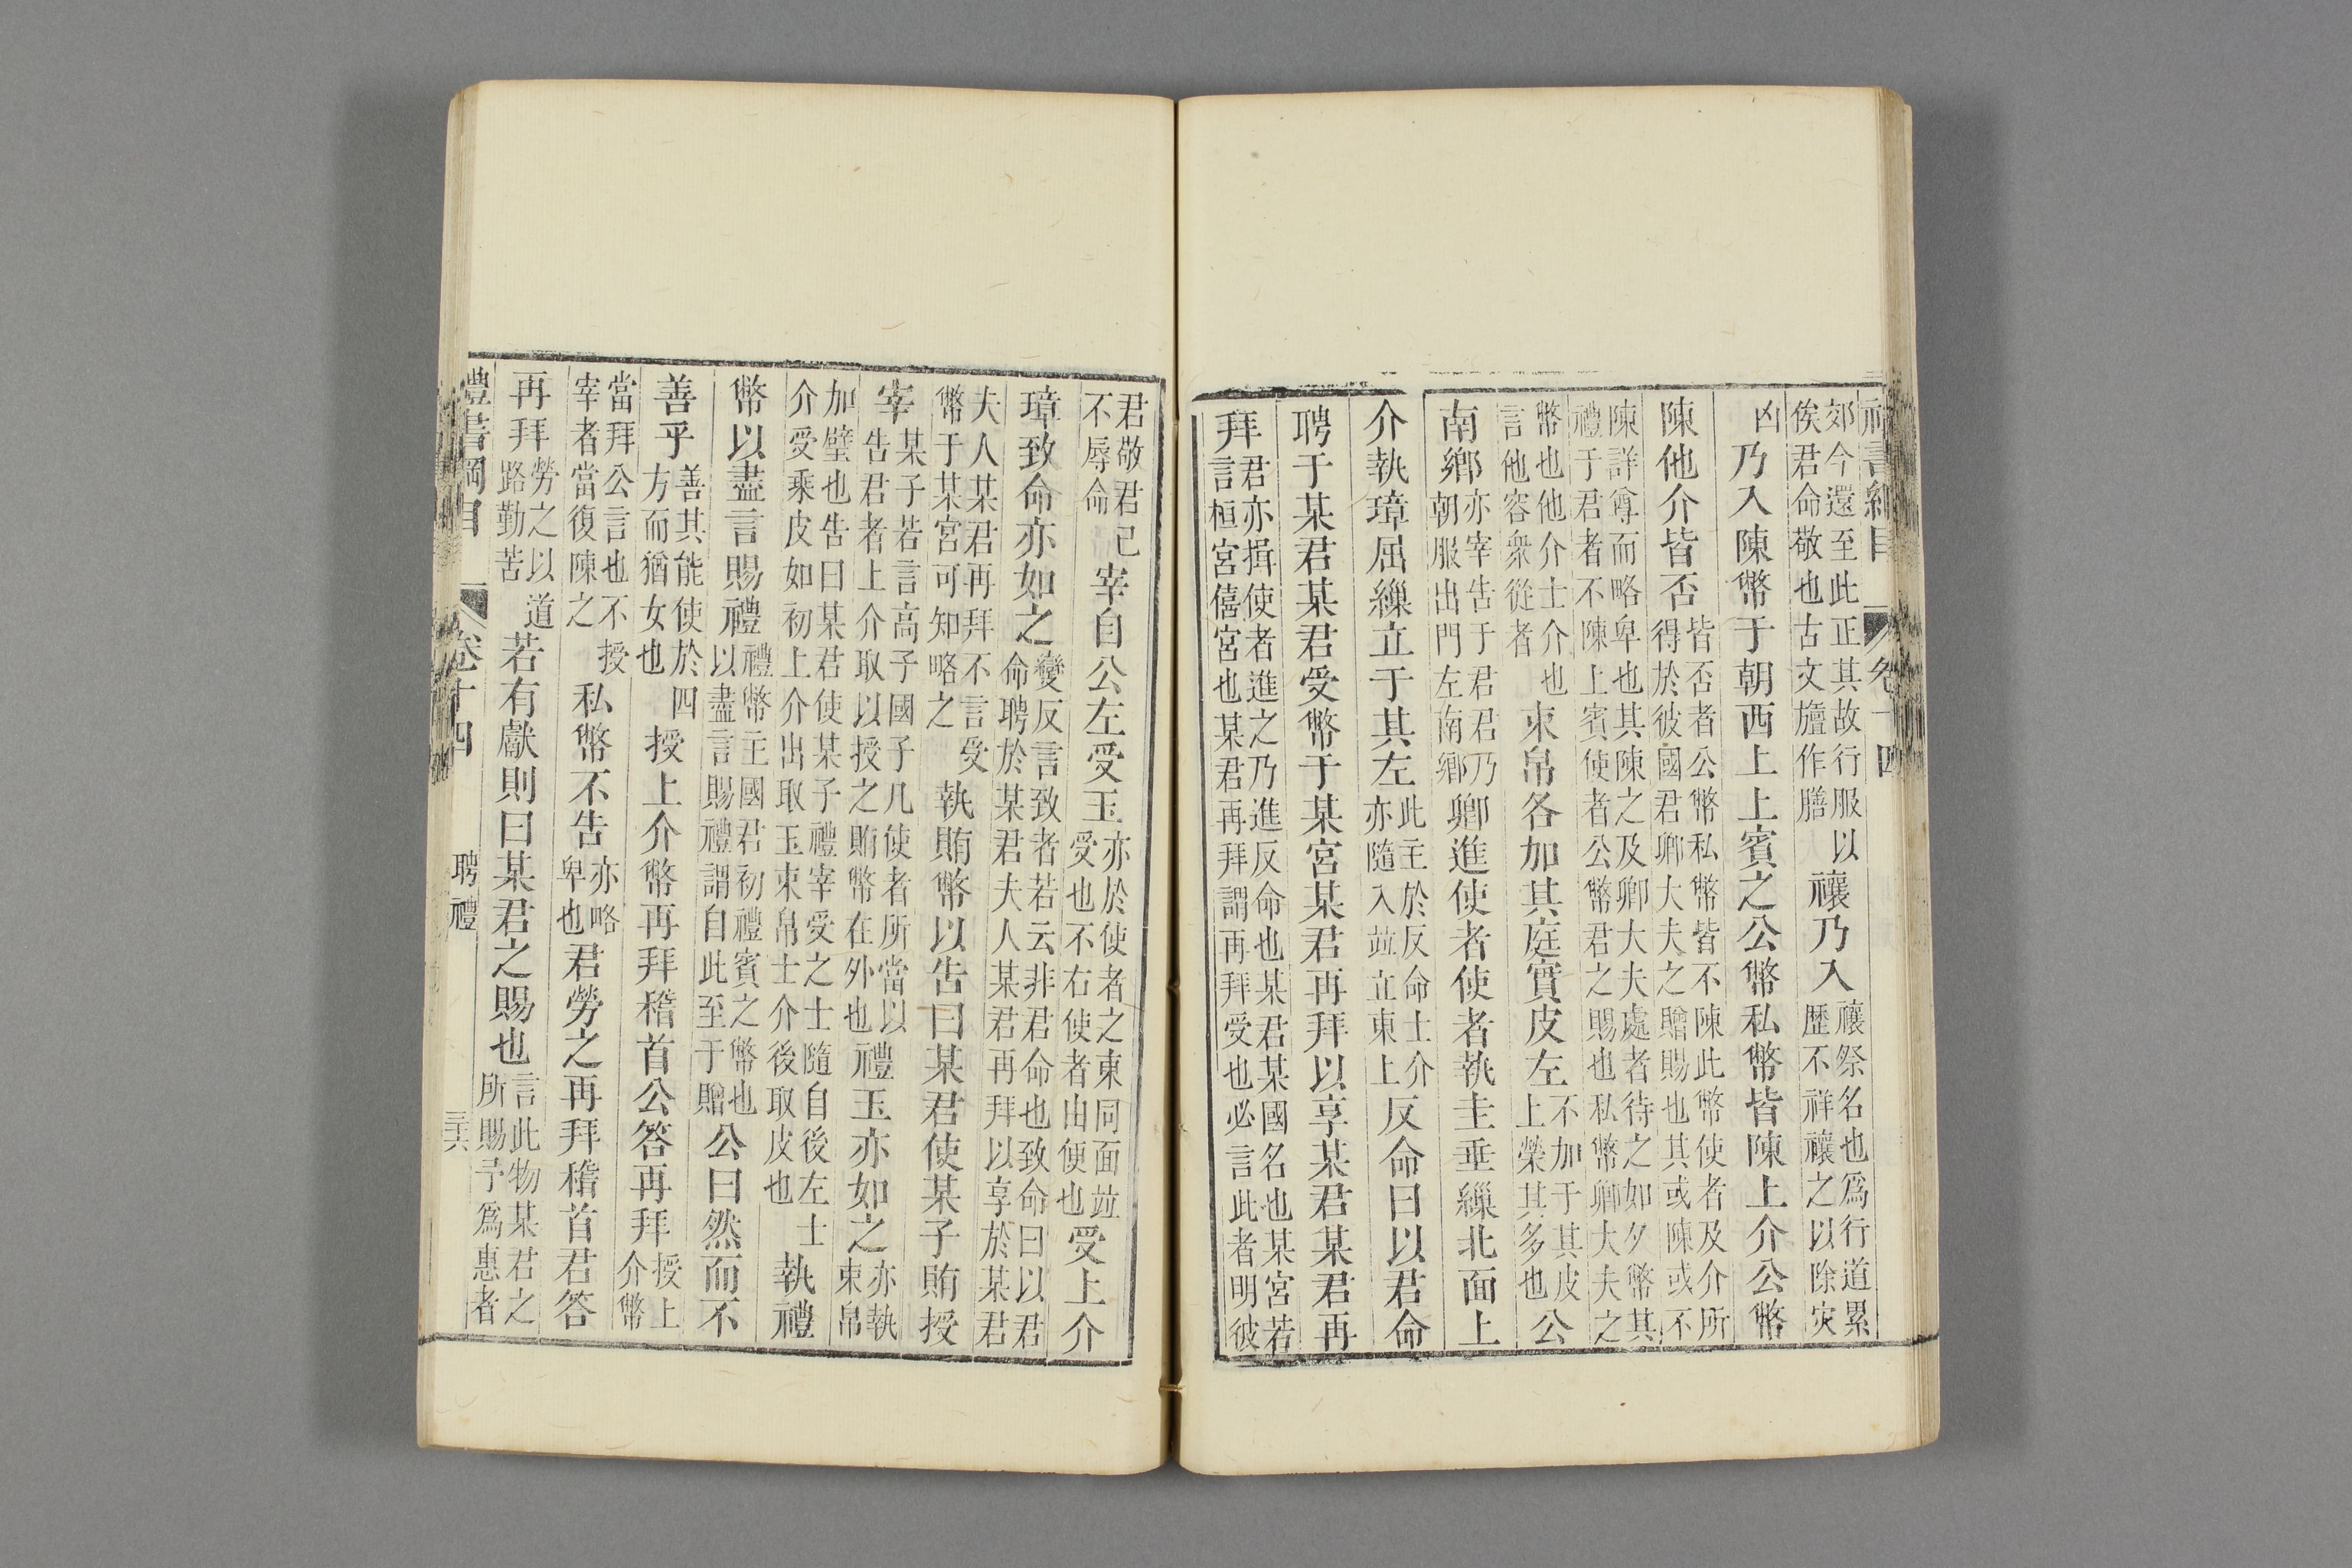 禮書綱目 卷十四
郊今還至此正其故行服以俟君命敬也古文襢作膳禳乃入禳祭名也爲行道累歷不祥禳之以除灾
凶乃入陳幣于朝西上上賓之公幣私幣皆陳上介公幣
陳他介皆否皆否者公幣私幣皆不陳此幣使者及介所得於彼國君卿大夫之贈賜也其或陳或不
陳詳尊而略卑也其陳之及卿大夫處者待之如夕幣其禮于君者不陳上賓使者公幣君之賜也私幣卿大夫之
幣也他介士介也言他容衆從者束帛各加其庭實皮左不加于其皮上榮其多也公
南鄉亦宰告于君君乃朝服出門左南鄉卿進使者使者執圭垂繅北面上
介執璋屈繅立于其左此主於反命士介亦隨入竝立東上反命曰以君命
聘于某君某君受幣于某宮某君再拜以享某君某君再
拜君亦揖使者進之乃進反命也某君某國名也某宮若言桓宮僖宮也某君再拜謂再拜受也必言此者明彼
君敬君已不辱命宰自公左受玉亦於使者之東同面竝受也不右使者由便也受上介
璋致命亦如之變反言致者若云非君命也致命曰以君命聘於某君夫人某君再拜以享於某君
夫人某君再拜不言受幣于某宮可知略之執賄幣以告曰某君使某子賄授
宰某子若言高子國子凡使者所當以告君者上介取以授之賄幣在外也禮玉亦如之亦執束帛
加璧也告曰某君使某子禮宰受之士隨自後左士介受乘皮如初上介出取玉束帛士介後取皮也執禮
幣以盡言賜禮禮幣主國君初禮賓之幣也以盡言賜禮謂自此至于贈公曰然而不
善乎善其能使於四方而猶女也授上介幣再拜稽首公答再拜授上介幣
當拜公言也不授宰者當復陳之私幣不告亦略卑也君勞之再拜稽首君答
再拜勞之以道路勤苦若有獻則曰某君之賜也言此物某君之所賜予爲惠者
禮書綱目 卷十四 聘禮 三六